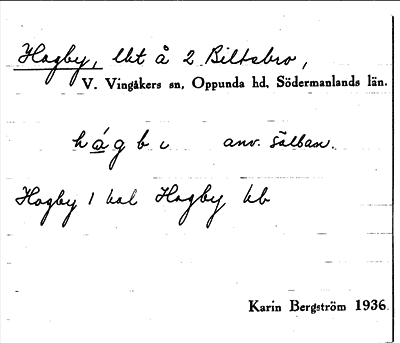 Hagby, lht å 2 Biltsbro,
V. Vingåkers sn, Oppunda hd, Södermanlands län.
hág b ι anv. sällan.
Hagby 1 hal Hagby kb
Karin Bergström 1936.